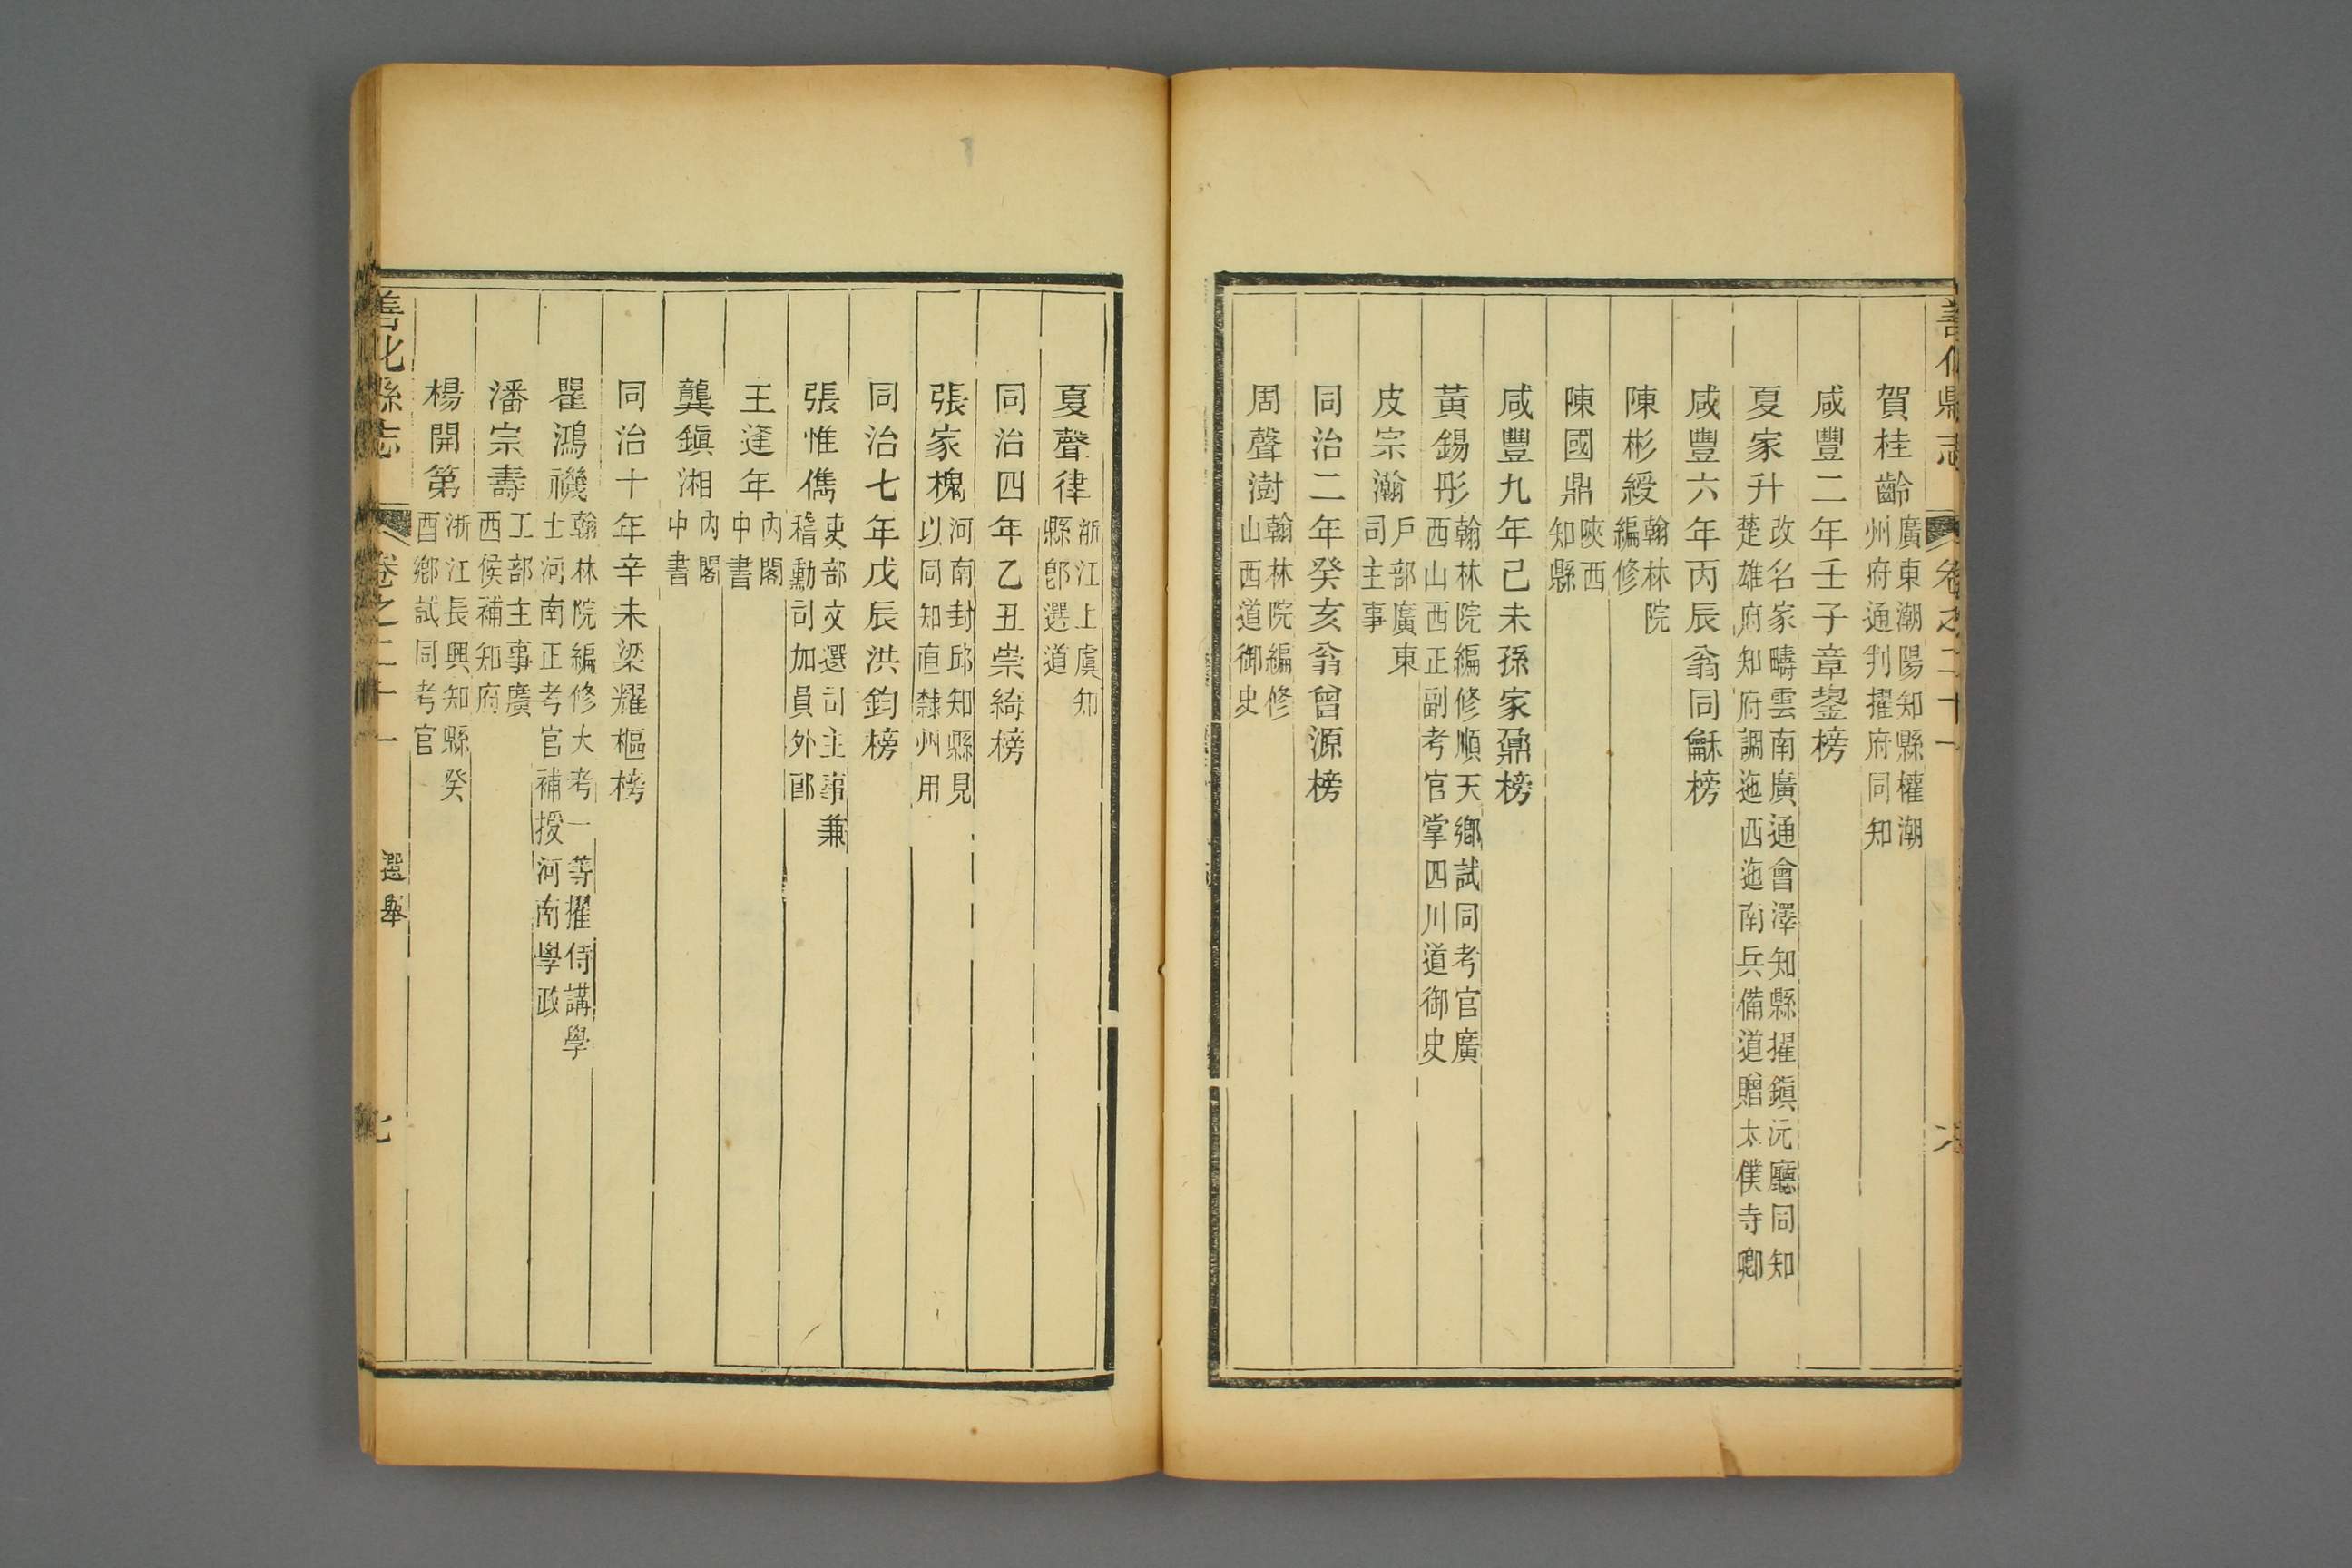 善化縣志 卷之二十一 六
賀桂齡 廣東潮陽知縣權潮州府通判擢府同知
咸豐二年壬子章鋆榜
夏家升 改名家疇雲南廣通會澤知縣擢鎭沅廳同知楚雄府知府調迤西迤南兵備道贈太僕寺卿
咸豐六年丙辰翁同龢榜
陳彬綬 翰林院編修
陳國鼎 陝西知縣
咸豐九年己未孫家鼐榜
黃錫彤 翰林院編修順天鄉試同考官廣西山西正副考官掌四川道御史
皮宗瀚 戶部廣東司主事
同治二年癸亥翁曾源榜
周聲澍 翰林院編修山西道御史
夏聲律 浙江上虞知縣卽選道
同治四年乙丑崇綺榜
張家槐 河南封邱知縣見以同知直隸州用
同治七年戊辰洪鈞榜
張惟儁 吏部文選司主事兼稽勳司加員外郎
王逢年 內閣中書
龔鎭湘 內閣中書
同治十年辛未梁耀樞榜
瞿鴻禨 翰林院編修大考一等擢侍講學士河南正考官補授河南學政
潘宗壽 工部主事廣西候補知府
楊開第 浙江長興知縣癸酉鄉試同考官
善化縣志 卷之二十一 選舉 七